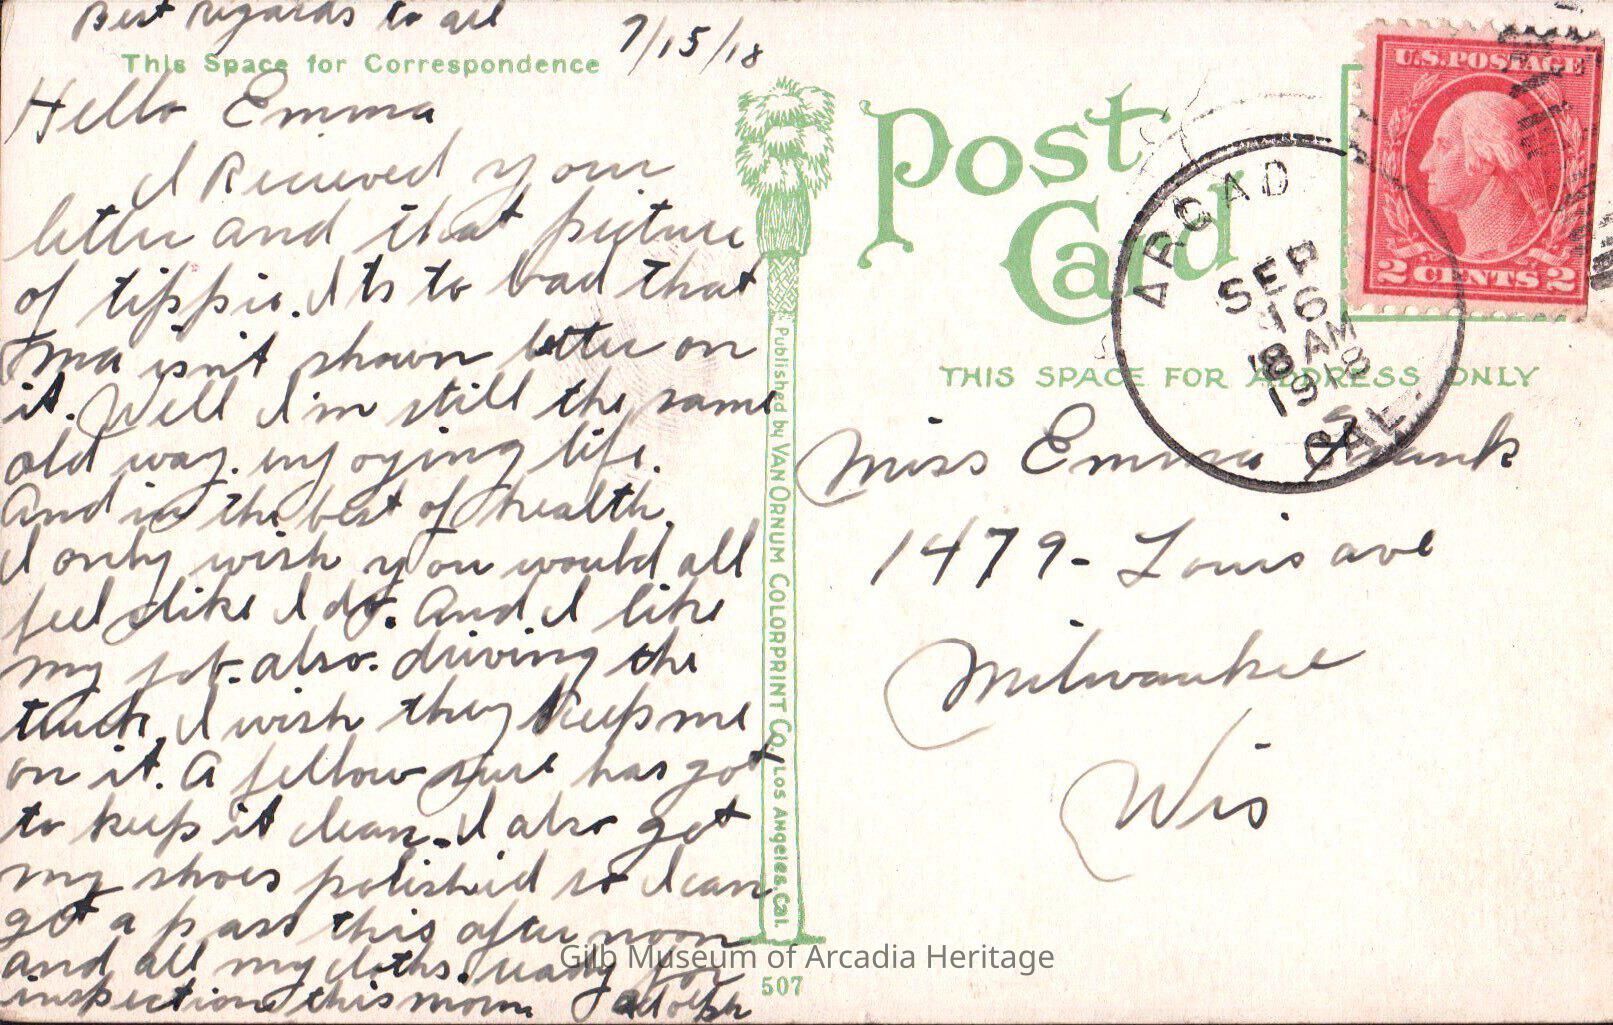 Best regards to all
7/15/18
This Space for Correspondence
Hello Emma
I Recieved your
letter and that picture
of tippie. Its to bad that
ma isn't shown better on
it. Well I'm still the same
old way. enjoying life.
And in the best of health.
I only wish you would all
feel like I do. And I like
my job also. driving the
truck, I wish they keep me
on it. A fellow sure has got
to keep it clean. I also got
my shoes polished so I can
get a pass this after noon
and all my cloths. ready for
inspection this morn. Adolph
Published by VAN ORNUM COLORPRINT CO., LOS ANGELES, CAL.
507
Post
Card
THIS SPACE FOR ADDRESS ONLY
U.S. POSTAGE
2 CENTS 2
ARCAD
CAL.
SEP
16
8 AM
1918
Miss Emma
1479 - Louis ave
Milwaukee
Wis
Gilb Museum of Arcadia Heritage